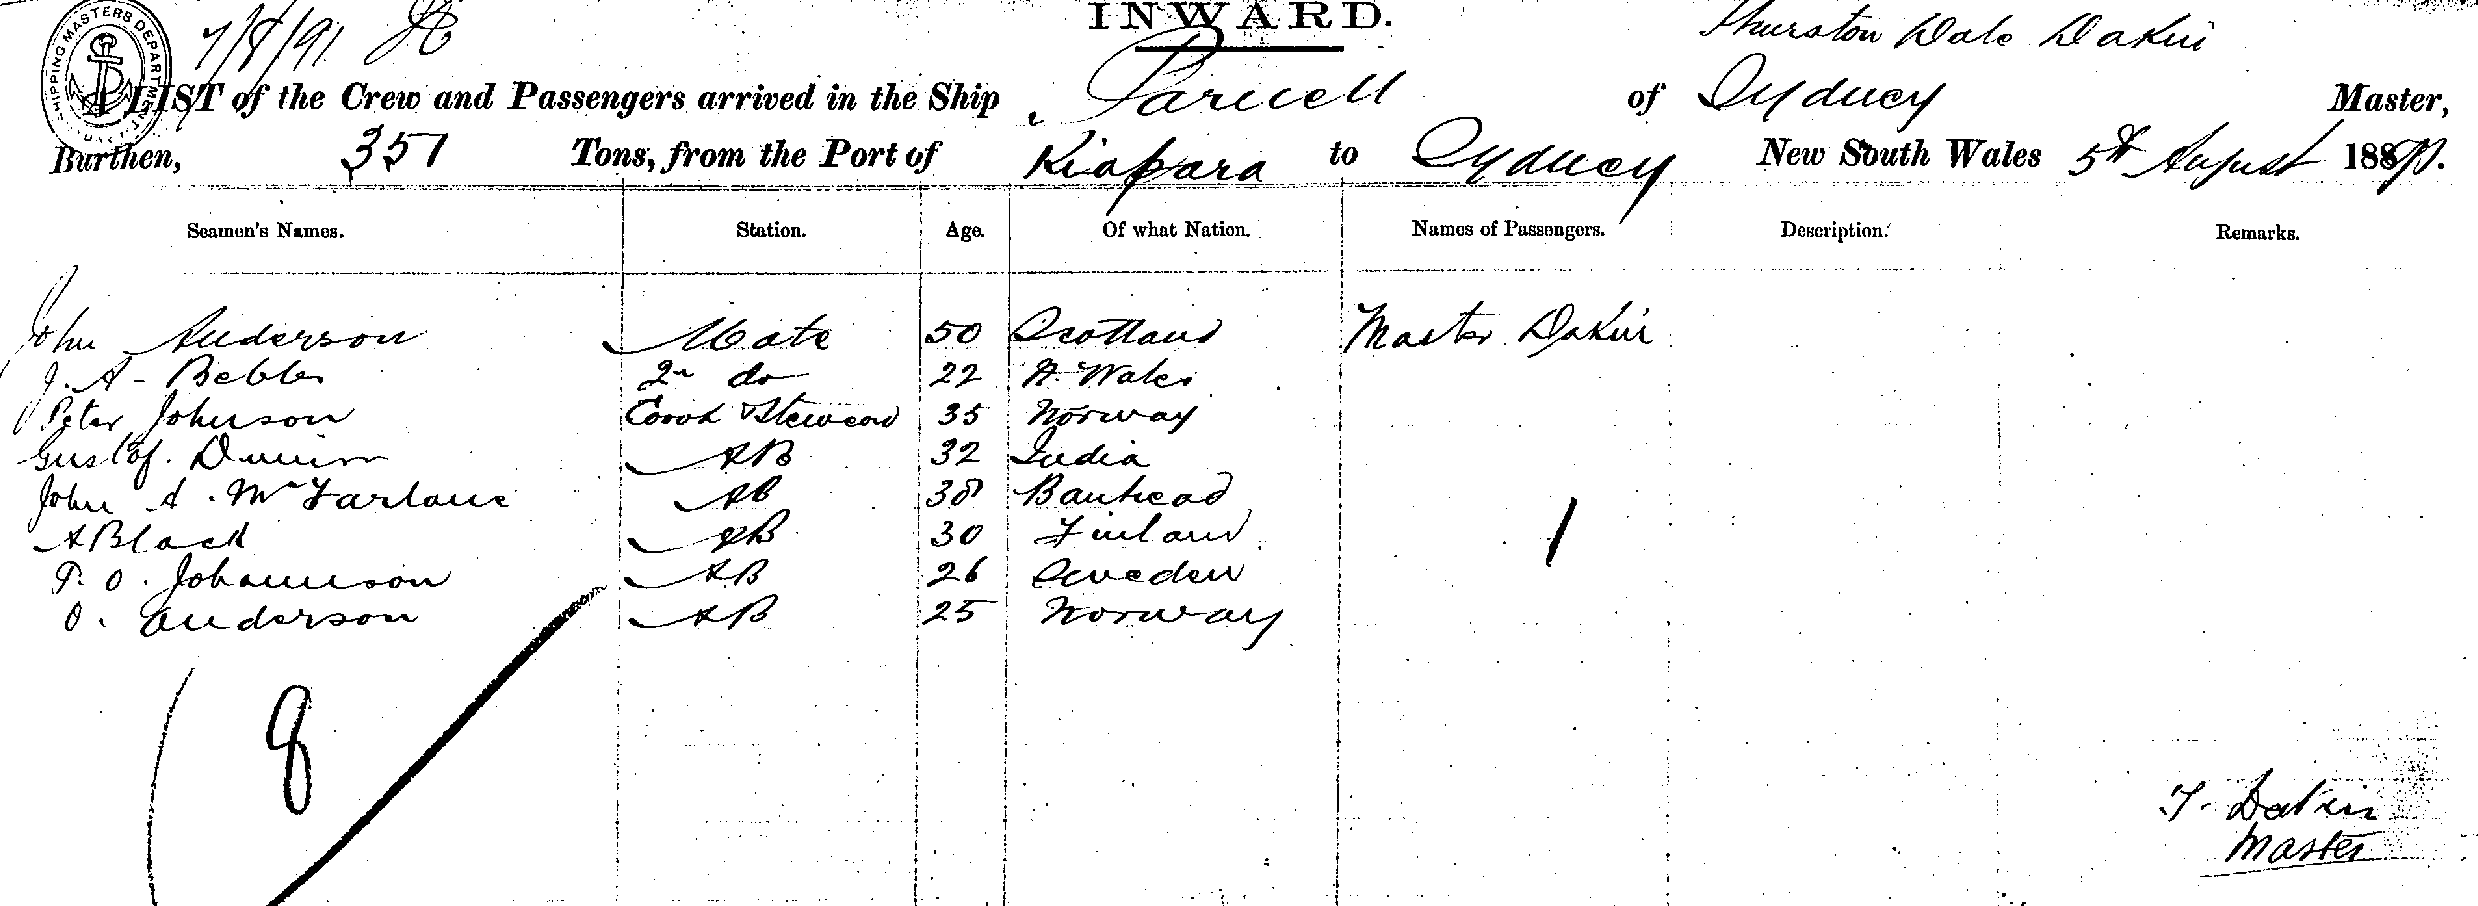 INWARD.
SHIPPING MASTERS DEPARTMENT
7/8/91
Thurston Dale Dakin
A LIST of the Crew and Passengers arrived in the Ship Parnell of Sydney Master,
Burthen, 351 Tons, from the Port of Kiapara to Sydney New South Wales 5th August 1891.
Seamen's Names. Station. Age. Of what Nation. Names of Passengers. Description. Remarks.
John Anderson Mate 50 Scotland Master Dakin
J. A - 2n do 22 Wales
Peter Johnson Cook Steward 35 Norway
Gustof. AB 32 India
John A. McFarlane AB 38
A Black AB 30 Finland
P. O. Johannson AB 26 Sweden
O. Anderson AB 25 Norway
1
8
T. Dakin
Master